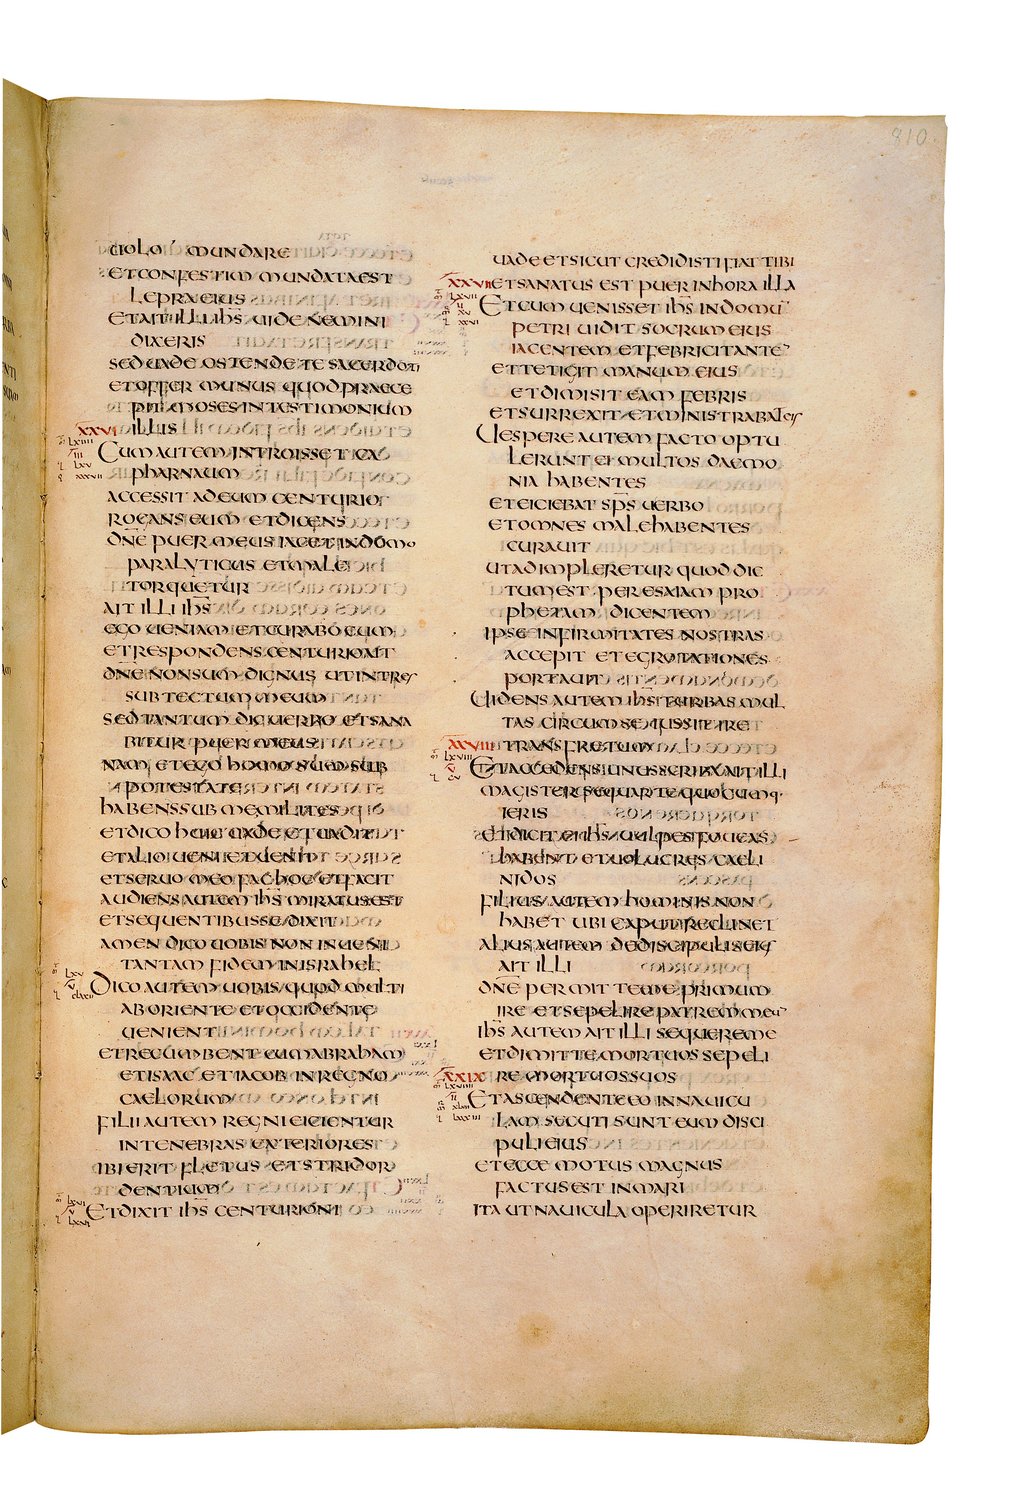 810
UOLO MUNDARE
ET CONFESTIM MUNDATA EST
LEPRA EIUS
ET AIT ILLI IHS UIDE NEMINI
DIXERIS
SED UADE OSTENDE TE SACERDOTI
ET OFFER MUNUS QUOD PRAECE
PIT MOSES IN TESTIMONIUM
XXVI ILLIS
CUM AUTEM INTROISSET CA
PHARNAUM
ACCESSIT AD EUM CENTURIO
ROGANS EUM ET DICENS
DNE PUER MEUS IACET IN DOMO
PARALYTICUS ET MALE
TORQUETUR
AIT ILLI IHS
EGO UENIAM ET CURABO EUM
ET RESPONDENS CENTURIO AIT
DNE NON SUM DIGNUS UT INTRES
SUB TECTUM MEUM
SED TANTUM DIC UERBO ET SANA
BITUR PUER MEUS
NAM ET EGO HOMO SUM SUB
POTESTATE
HABENS SUB ME MILITES
ET DICO HUIC UADE ET UADIT
ET ALIO UENI ET UENIT
ET SERUO MEO FAC HOC ET FACIT
AUDIENS AUTEM IHS MIRATUS EST
ET SEQUENTIBUS SE DIXIT
AMEN DICO UOBIS NON INUENI
TANTAM FIDEM IN ISRAHEL
DICO AUTEM UOBIS QUOD MULTI
AB ORIENTE ET OCCIDENTE
UENIENT
ET RECUMBENT CUM ABRAHAM
ET ISAAC ET IACOB IN REGNO
CAELORUM
FILII AUTEM REGNI EICIENTUR
IN TENEBRAS EXTERIORES
IBI ERIT FLETUS ET STRIDOR
DENTIUM
ET DIXIT IHS CENTURIONI
UADE ET SICUT CREDIDISTI FIAT TIBI
XXVII ET SANATUS EST PUER IN HORA ILLA
ET CUM UENISSET IHS IN DOMU
PETRI UIDIT SOCRUM EIUS
IACENTEM ET FEBRICITANTE
ET TETIGIT MANUM EIUS
ET DIMISIT EAM FEBRIS
ET SURREXIT ET MINISTRABAT EIS
UESPERE AUTEM FACTO OPTU
LERUNT EI MULTOS DAEMO
NIA HABENTES
ET EICIEBAT SPS UERBO
ET OMNES MALE HABENTES
CURAUIT
UT ADIMPLERETUR QUOD DIC
TUM EST PER ESAIAM PRO
PHETAM DICENTEM
IPSE INFIRMITATES NOSTRAS
ACCEPIT ET EGROTATIONES
PORTAUIT
UIDENS AUTEM IHS TURBAS MUL
TAS CIRCUM SE IUSSIT IRE
XXVIII TRANS FRETUM
ET ACCEDENS UNUS SCRIBA AIT ILLI
MAGISTER SEQUAR TE QUOCUMQ
IERIS
ET DICIT EI IHS UULPES FOUEAS
HABENT ET UOLUCRES CAELI
NIDOS
FILIUS AUTEM HOMINIS NON
HABET UBI CAPUT RECLINET
ALIUS AUTEM DE DISCIPULIS EIUS
AIT ILLI
DNE PERMITTE ME PRIMUM
IRE ET SEPELIRE PATREM MEU
IHS AUTEM AIT ILLI SEQUERE ME
ET DIMITTE MORTUOS SEPELI
XXIX RE MORTUOS SUOS
ET ASCENDENTE EO IN NAUICU
LAM SECUTI SUNT EUM DISCI
PULI EIUS
ET ECCE MOTUS MAGNUS
FACTUS EST IN MARI
ITA UT NAUICULA OPERIRETUR